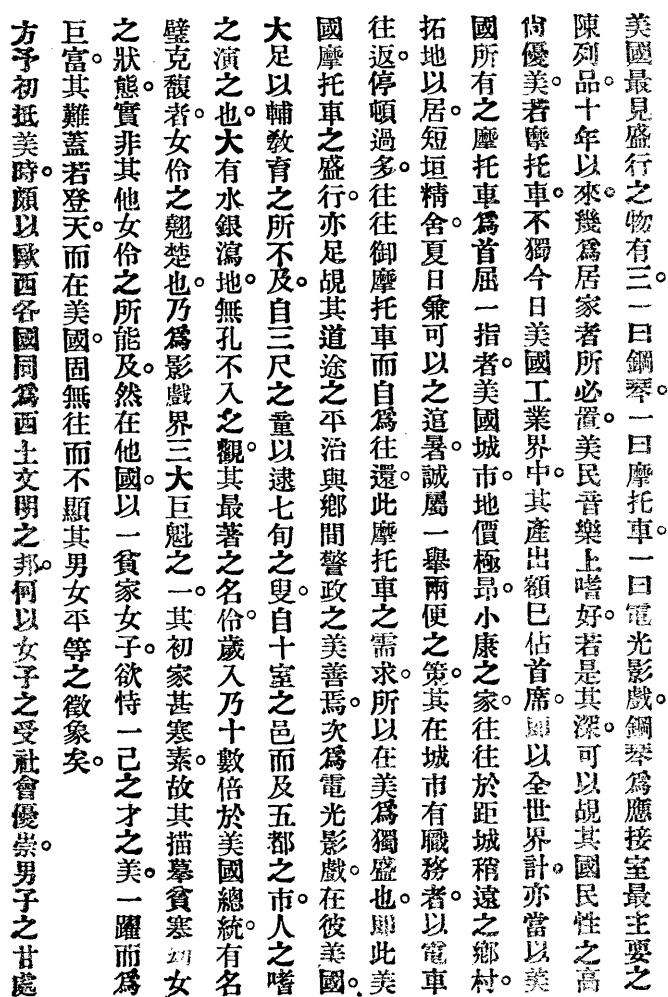 美國最見盛行之物有三。一曰鋼琴。一曰摩托車。一曰電光影戲。鋼琴爲應接室最主要之
陳列品。十年以來。幾爲居家者所必置。美民音樂上嗜好。若是其深。可以覘其國民性之高
尙優美。若摩托車。不獨今日美國工業界中。其產出額已佔首席。卽以全世界計。亦當以美
國所有之摩托車爲首屈一指者。美國城市。地價極昂。小康之家。往往於距城稍遠之鄉村。
拓地以居。短垣精舍。夏日兼可以之逭暑。誠屬一舉兩便之策。其在城市有職務者。以電車
往返。停頓過多。往往御摩托車而自爲往還。此摩托車之需求。所以在美爲獨盛也。卽此美
國摩托車之盛行。亦足覘其道途之平治與鄉間警政之美善焉。次爲電光影戲。在彼美國。
大足以輔敎育之所不及。自三尺之童以逮七旬之叟。自十室之邑而及五都之市。人之嗜
之演之也。大有水銀瀉地。無孔不入之觀。其最著之名伶。歲入乃十數倍於美國總統。有名
璧克馥者。女伶之翹楚也。乃爲影戲界三大巨魁之一。其初家甚寒素。故其描摹貧寒女
之狀態。實非其他女伶之所能及。然在他國。以一貧家女子。欲恃一己之才之美。一躍而爲
巨富。其難蓋若登天。而在美國。固無往而不顯其男女平等之徵象矣。
方予初抵美時。頗以歐西各國同爲西土文明之邦。何以女子之受社會優崇。男子之甘處